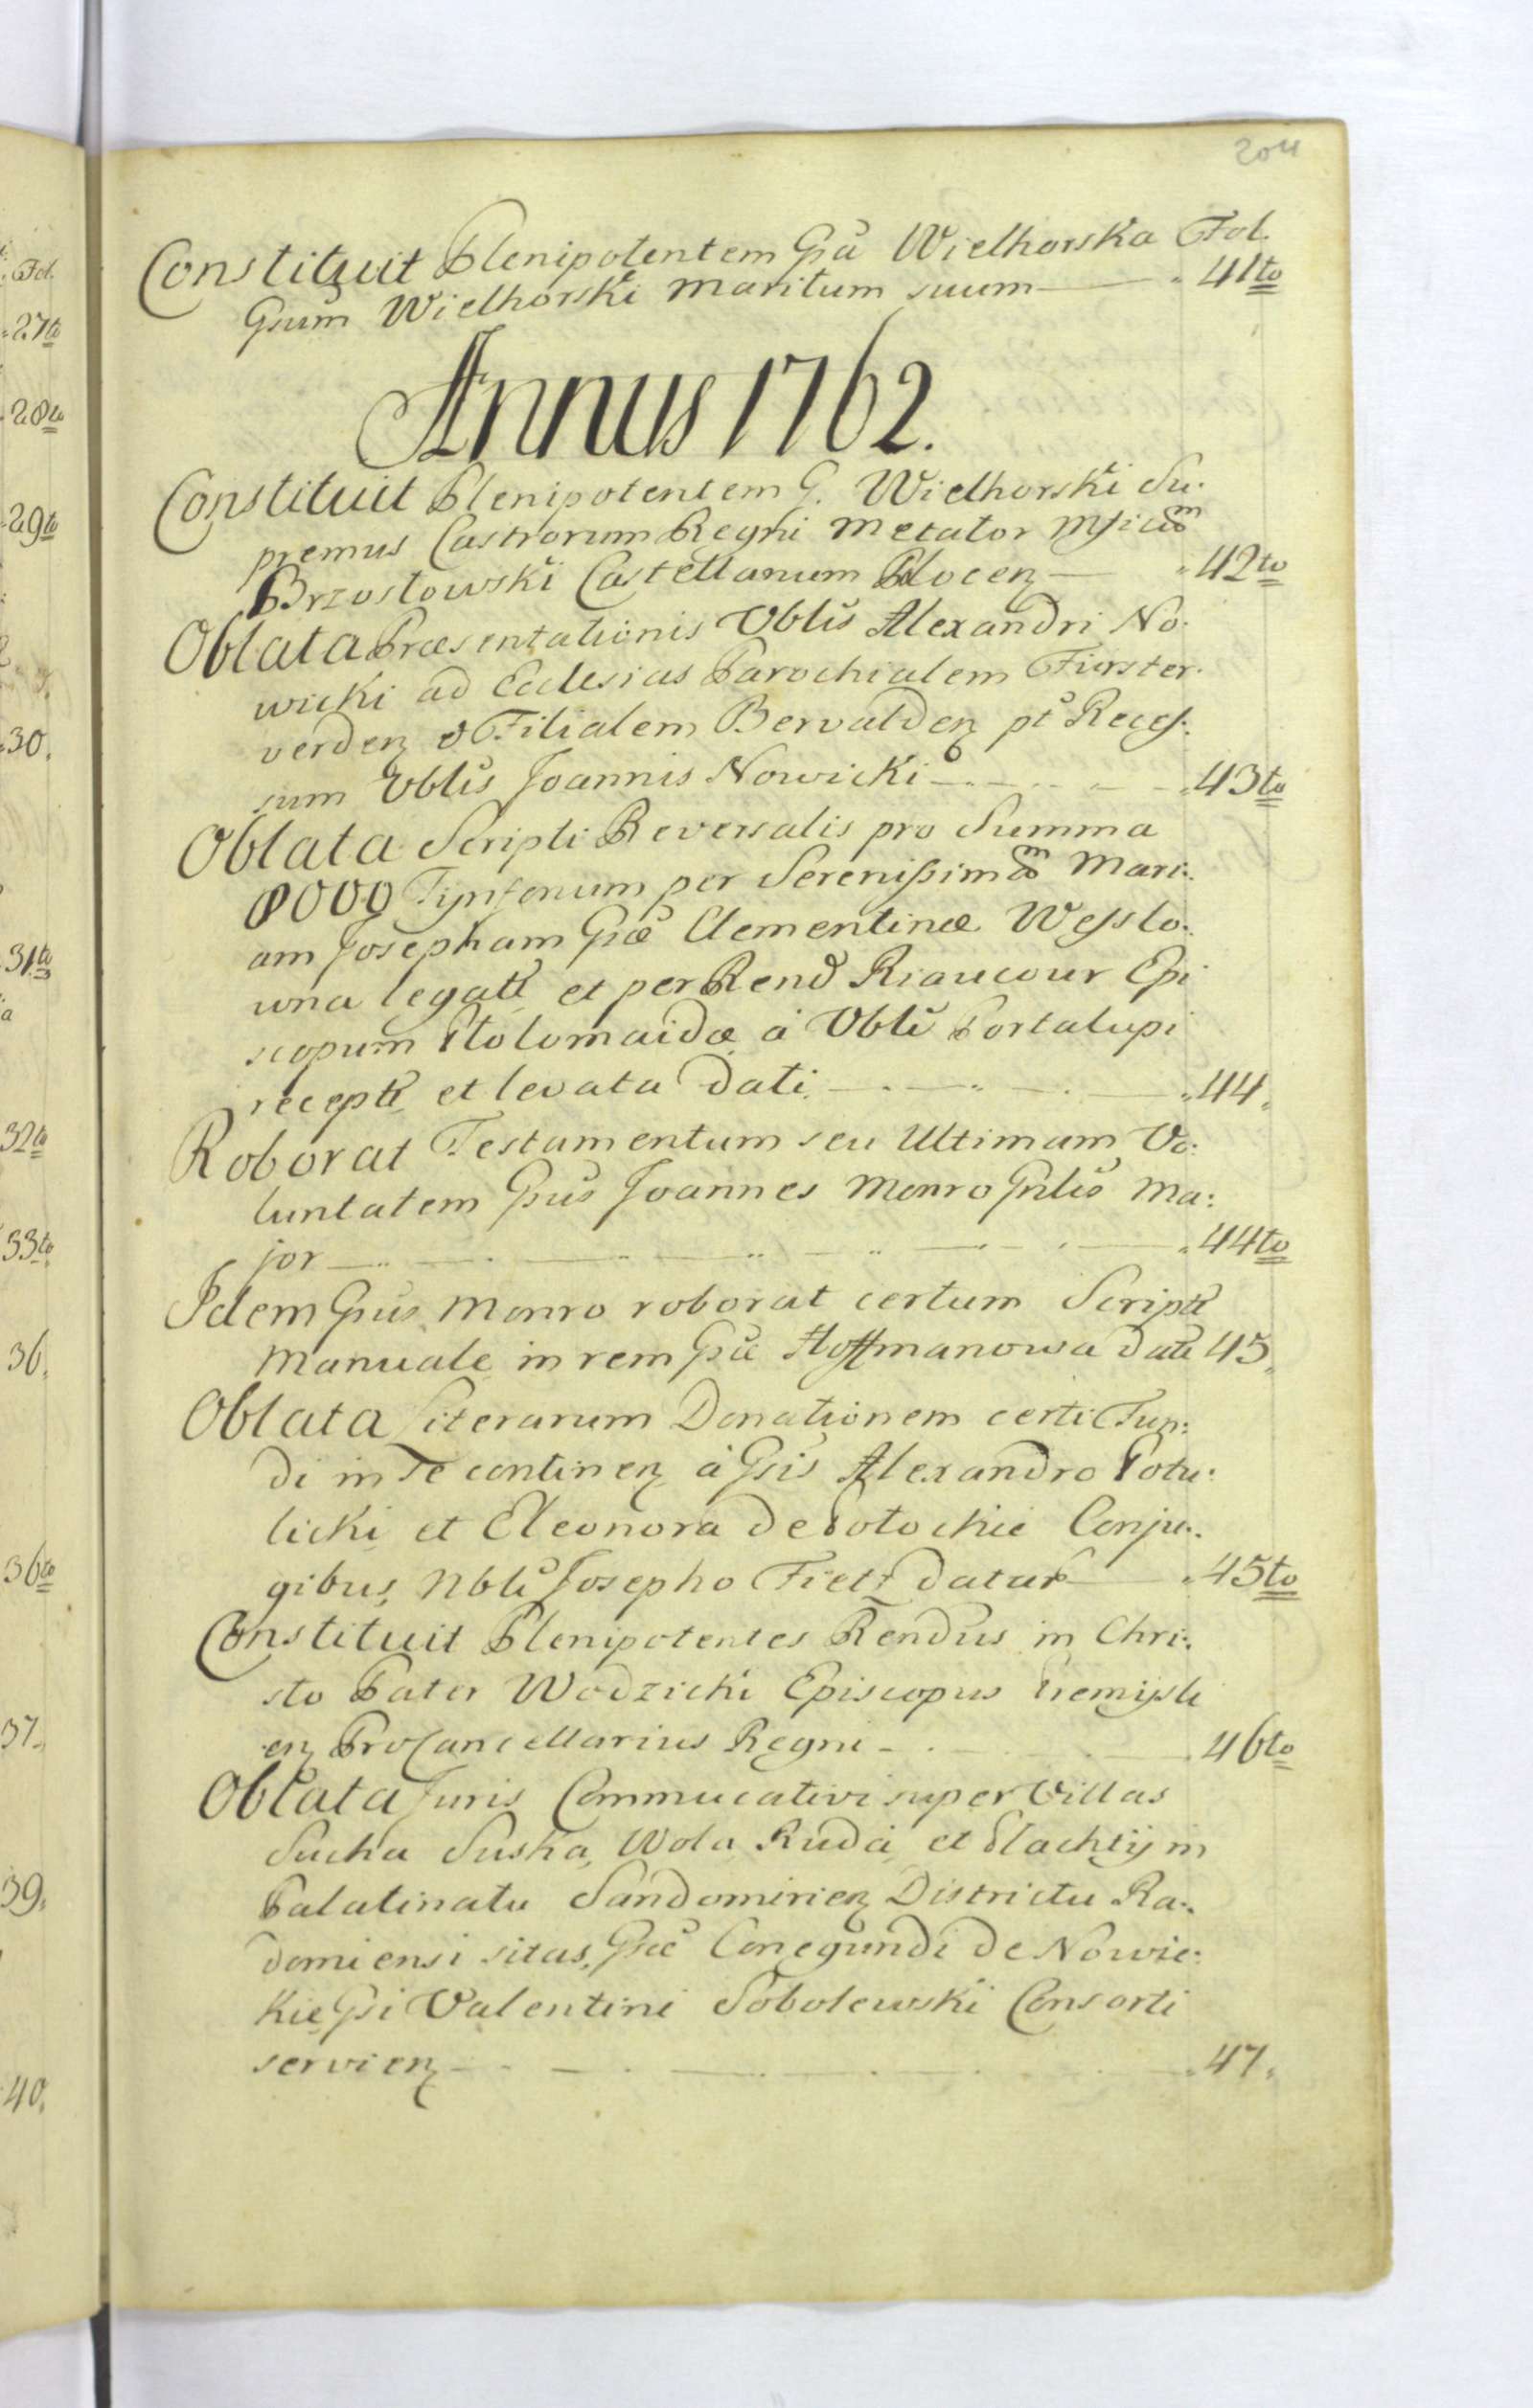 204
Constituit Plenipotentem Gsa Wielhorska Fol.
Gsum Wielhorski Maritum suum 41to
Annus 1762.
Constituit Plenipotentem G. Wielhorski Su.
premus Castrorum Regni Metator
Brzostowski Castellanum Plocen 42to
Oblata Præsentationis Vblis Alexandri No.
wicki ad Ecclesias Parochialem Fürster.
verden & Filialem Bervalden pt Reces.
sum Vblis Joannis Nowicki 43to
Oblata Scripti Reversalis pro Summa
8000 Tynfonum per Serenissimam Mari.
am Josepham Gsæ Clementinæ Wesslo.
wna legatt et per Rend Riaucour Epi
scopum Ptolomaidæ à Vbli Portalupi
receptt et levata Dati 44.
Roborat Testamentum seu Ultimam Vo:
luntatem Gsus Joannes Monro Gnlis Ma:
jor 44to
Idem Gsus Monro roborat certum Scriptt
Manuale in rem Gsæ Hoffmanowa Datt 45.
Oblata Literarum Donationem certi Fun:
di in se continen à Gsis Alexandro Potu:
licki et Eleonora de Potockie Conju:
gibus, Nbli Josepho Fietz datar 45to
Constituit Plenipotentes Rendus in Chri:
sto Pater Wodzicki Episcopus Premisli
en ProCancellarius Regni 46to
Oblata Juris Commucativi super Villas
Sucha Suska, Wola Ruda, et Slachtÿ in
Palatinatu Sandomirien Districtu Ra:
domiensi sitas, Gsæ Conegundi de Nowic:
kie Gsi Valentini Sobolewski Consorti
servien 47.
Fol.
27to
28to
29to
30.
31to
32to
33to
36.
36to
37.
39.
40.